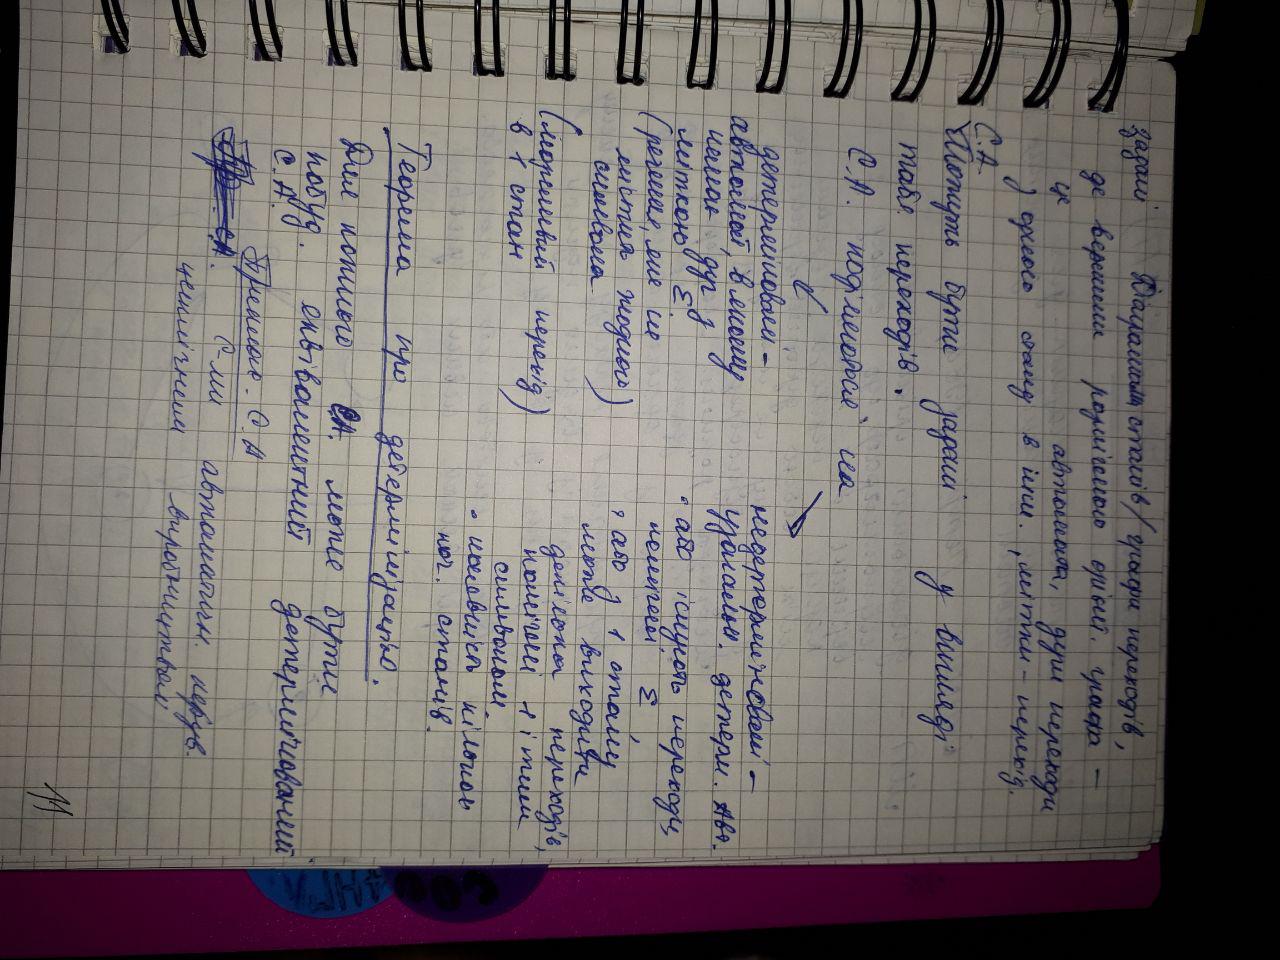 задані Діаграмами станів/графа переходів,
де вершини розміченого орієнт. графа –
це автомата, дуги переходи
з одного стану в інш., мітки – перехід.
С.А.
Можуть бути задані у вигляді
табл. переходів.
С.А. поділяються на
детерміновані –
автомат, в якому
немає дуг з
міткою Ɛ.
(речення, яке не
містить жодного)
символа
(можливий перехід)
в 1 стан
недетерміновані –
узагальн. детерм. Авт.
• або існують переходи,
помічені Ɛ,
• або з 1 стану
може виходити
декілька переходів,
помічені 1 і тим
символом.
• наявність кількох
поч. станів.
Теорема про детермінізацію.
Для кожного СА. може бути
побуд. еквівалентний детермінований
С.А.
Приклад. С.А
С-ми автоматичн. керув.
циклічним виробництвом
11